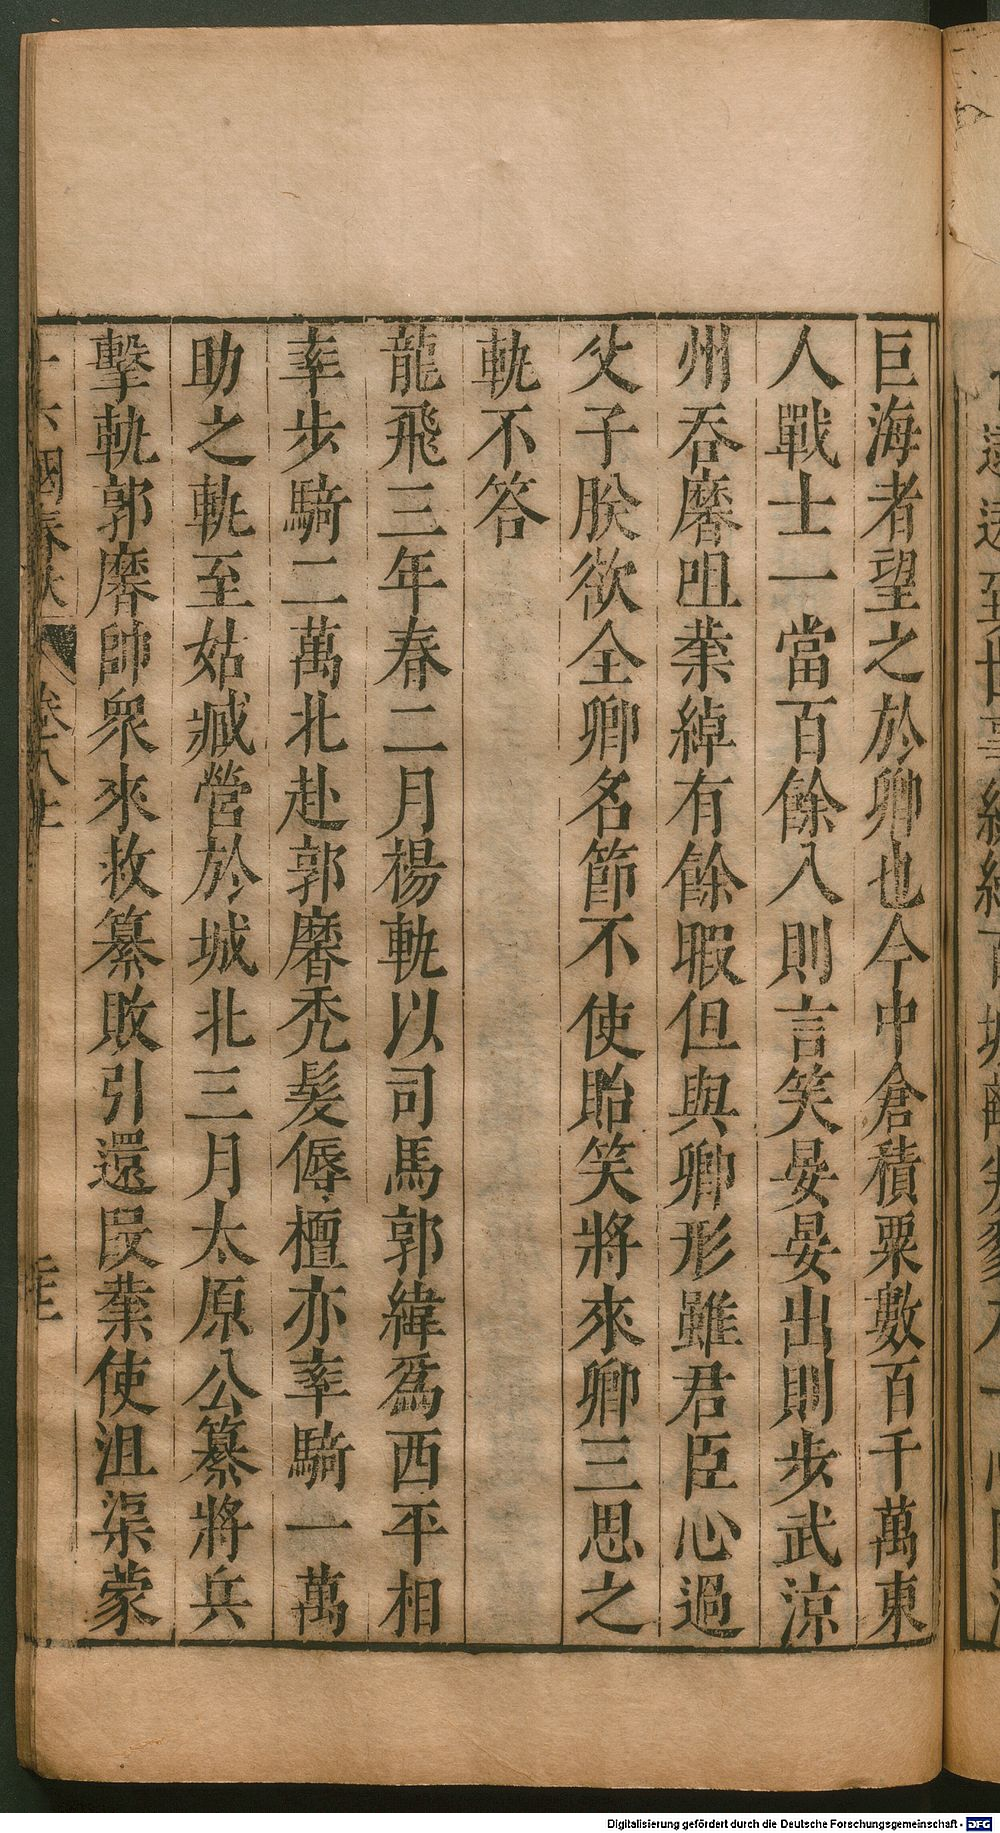 巨海者望之於卿也今中倉積粟數百千萬東
人戰士一當百餘入則言笑晏晏出則步武涼
州吞䴢咀業綽有餘暇但與卿形雖君臣心過
父子朕欲全卿名節不使貽笑將來卿三思之
軌不答
龍飛三年春二月楊軌以司馬郭緯爲西平相
率步騎二萬北赴郭䴢禿髮傉檀亦率騎一萬
助之軌至姑臧營於城北三月太原公纂將兵
擊軌郭䴢帥衆來救纂敗引還段業使沮渠蒙
十六國春秋 卷八十
Digitalisierung gefördert durch die Deutsche Forschungsgemeinschaft - DFG